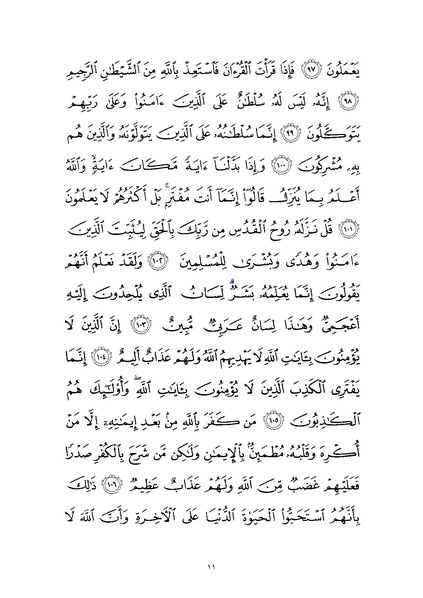 يَعۡمَلُونَ ٩٧ فَإِذَا قَرَأۡتَ ٱلۡقُرۡءَانَ فَٱسۡتَعِذۡ بِٱللَّهِ مِنَ ٱلشَّيۡطَٰنِ ٱلرَّجِيمِ
٩٨ إِنَّهُۥ لَيۡسَ لَهُۥ سُلۡطَٰنٌ عَلَى ٱلَّذِينَ ءَامَنُواْ وَعَلَىٰ رَبِّهِمۡ
يَتَوَكَّلُونَ ٩٩ إِنَّمَا سُلۡطَٰنُهُۥ عَلَى ٱلَّذِينَ يَتَوَلَّوۡنَهُۥ وَٱلَّذِينَ هُم
بِهِۦ مُشۡرِكُونَ ١٠٠ وَإِذَا بَدَّلۡنَآ ءَايَةٗ مَّكَانَ ءَايَةٖ وَٱللَّهُ
أَعۡلَمُ بِمَا يُنَزِّلُ قَالُوٓاْ إِنَّمَآ أَنتَ مُفۡتَرِۭۚ بَلۡ أَكۡثَرُهُمۡ لَا يَعۡلَمُونَ
١٠١ قُلۡ نَزَّلَهُۥ رُوحُ ٱلۡقُدُسِ مِن رَّبِّكَ بِٱلۡحَقِّ لِيُثَبِّتَ ٱلَّذِينَ
ءَامَنُواْ وَهُدٗى وَبُشۡرَىٰ لِلۡمُسۡلِمِينَ ١٠٢ وَلَقَدۡ نَعۡلَمُ أَنَّهُمۡ
يَقُولُونَ إِنَّمَا يُعَلِّمُهُۥ بَشَرٞۗ لِّسَانُ ٱلَّذِي يُلۡحِدُونَ إِلَيۡهِ
أَعۡجَمِيّٞ وَهَٰذَا لِسَانٌ عَرَبِيّٞ مُّبِينٌ ١٠٣ إِنَّ ٱلَّذِينَ لَا
يُؤۡمِنُونَ بِـَٔايَٰتِ ٱللَّهِ لَا يَهۡدِيهِمُ ٱللَّهُ وَلَهُمۡ عَذَابٌ أَلِيمٌ ١٠٤ إِنَّمَا
يَفۡتَرِي ٱلۡكَذِبَ ٱلَّذِينَ لَا يُؤۡمِنُونَ بِـَٔايَٰتِ ٱللَّهِۖ وَأُوْلَٰٓئِكَ هُمُ
ٱلۡكَٰذِبُونَ ١٠٥ مَن كَفَرَ بِٱللَّهِ مِنۢ بَعۡدِ إِيمَٰنِهِۦٓ إِلَّا مَنۡ
أُكۡرِهَ وَقَلۡبُهُۥ مُطۡمَئِنُّۢ بِٱلۡإِيمَٰنِ وَلَٰكِن مَّن شَرَحَ بِٱلۡكُفۡرِ صَدۡرٗا
فَعَلَيۡهِمۡ غَضَبٞ مِّنَ ٱللَّهِ وَلَهُمۡ عَذَابٌ عَظِيمٞ ١٠٦ ذَٰلِكَ
بِأَنَّهُمُ ٱسۡتَحَبُّواْ ٱلۡحَيَوٰةَ ٱلدُّنۡيَا عَلَى ٱلۡأٓخِرَةِ وَأَنَّ ٱللَّهَ لَا
١١